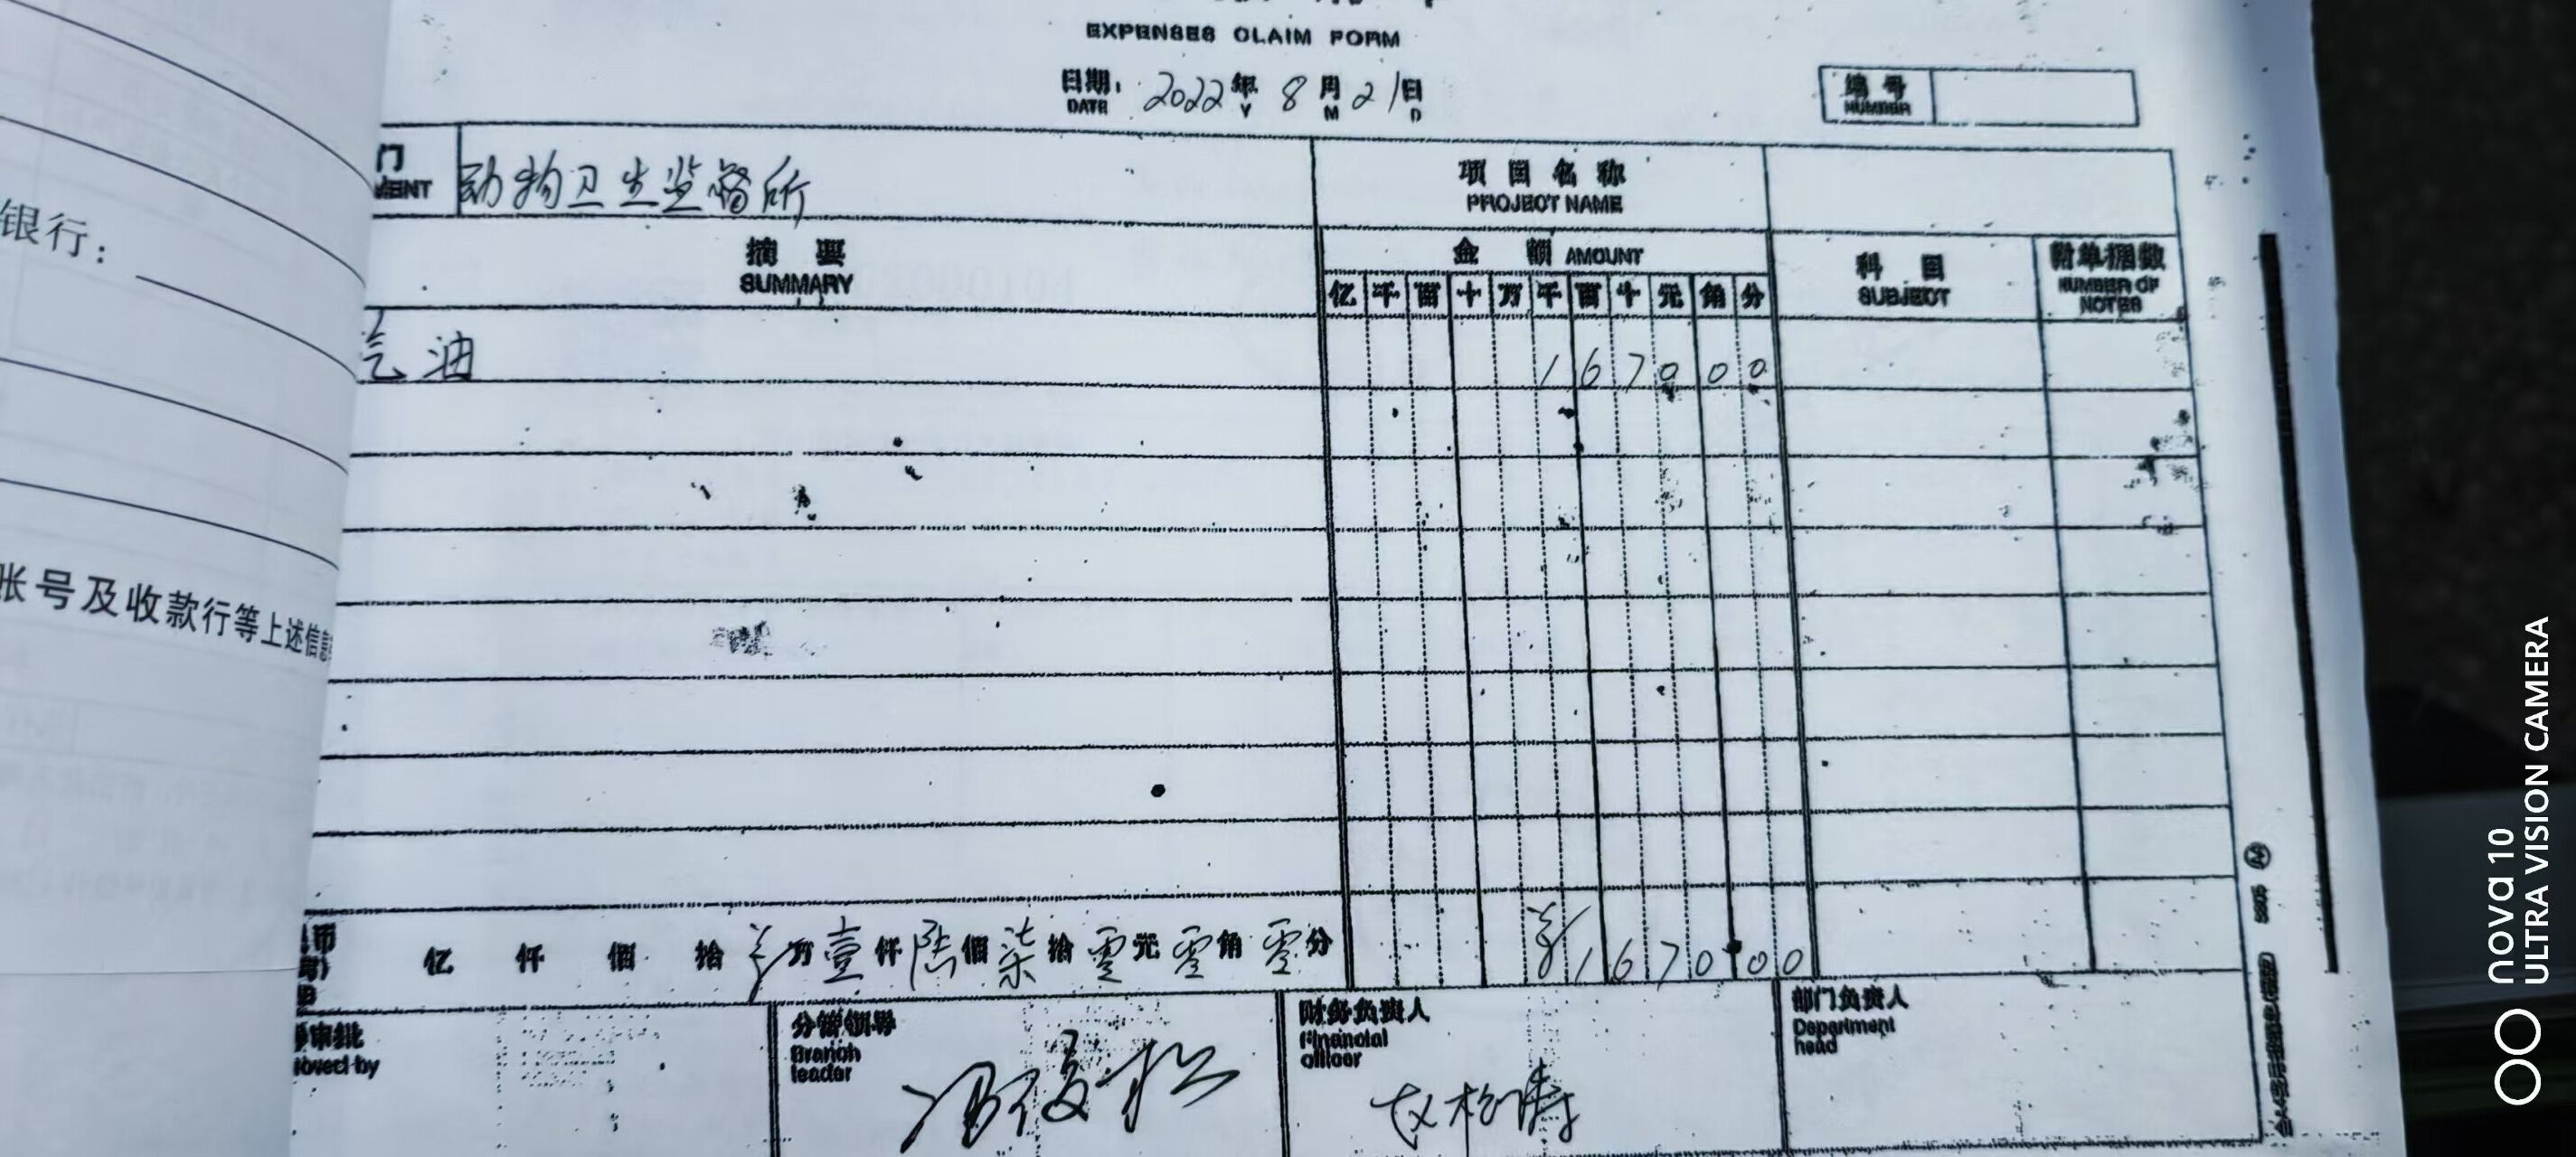 EXPENSES CLAIM FORM
日期: 2022 年 8 月 21 日
DATE Y M D
编号
NUMBER
门
MENT
动物卫生监督所
项目名称
PROJECT NAME
摘要
SUMMARY
金额 AMOUNT
亿 千 百 十 万 千 百 十 元 角 分
科目
SUBJECT
附单据数
NUMBER OF
NOTES
汽油
1 6 7 0 0 0
亿 仟 佰 拾 万 壹 仟 陆 佰 柒 拾 零 元 零 角 零 分
1 6 7 0 0 0
审批
oved by
分管领导
Branch
leader
财务负责人
Financial
officer
部门负责人
Department
head
银行:
账号及收款行等上述信息
nova 10
ULTRA VISION CAMERA